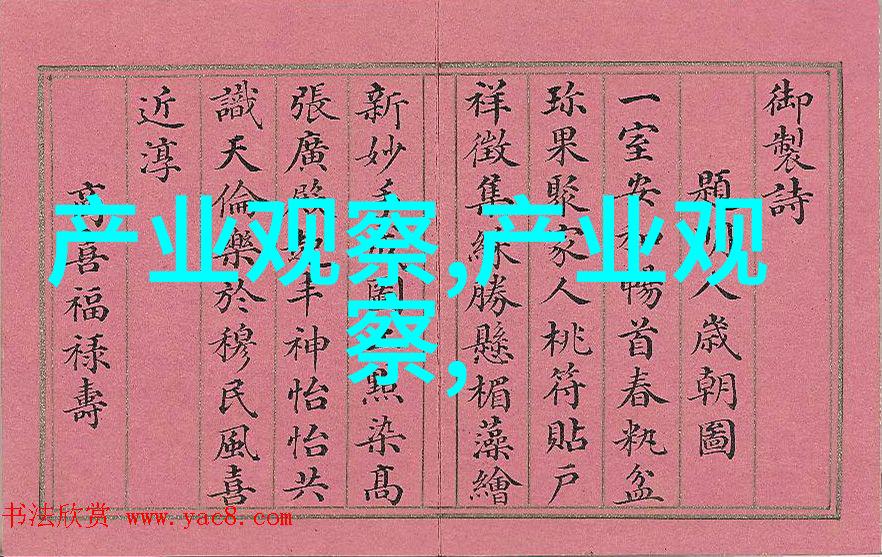 御製詩
題人歲朝圖
一室安和暢首春籸盆
珎果聚家人桃符貼戶
祥徵集綵勝懸楣藻繪
新妙手圖點染高
張廣丰神怡怡共
識天倫樂於穆民風喜
近淳
喜福祿壽
产业观察,产业观
察,
书法欣赏 www.yac8.com